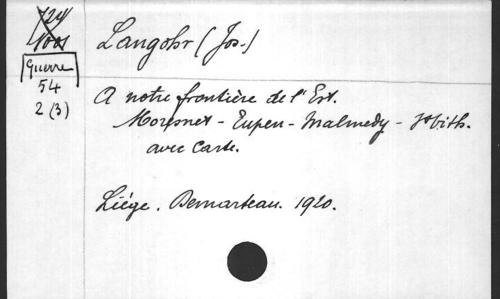 724
1001
Langohr (Jos.)
Guerre
54
2 (3)
A notre frontière de l'Est.
Moresnet - Eupen - Malmedy - St Vith.
avec carte.
Liége. Demarteau. 1920.